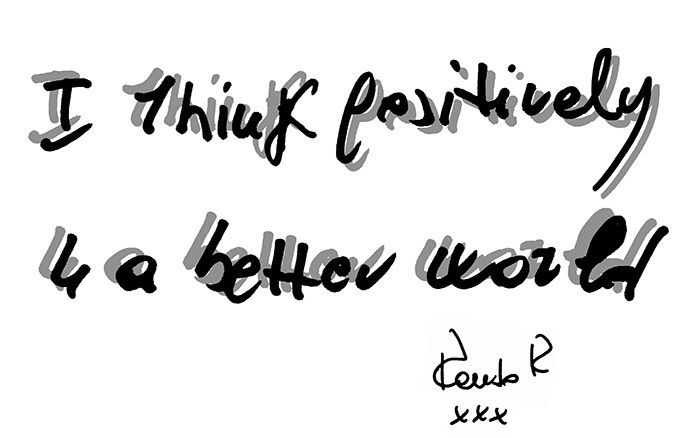 I think positively
in a better world
R
xxx